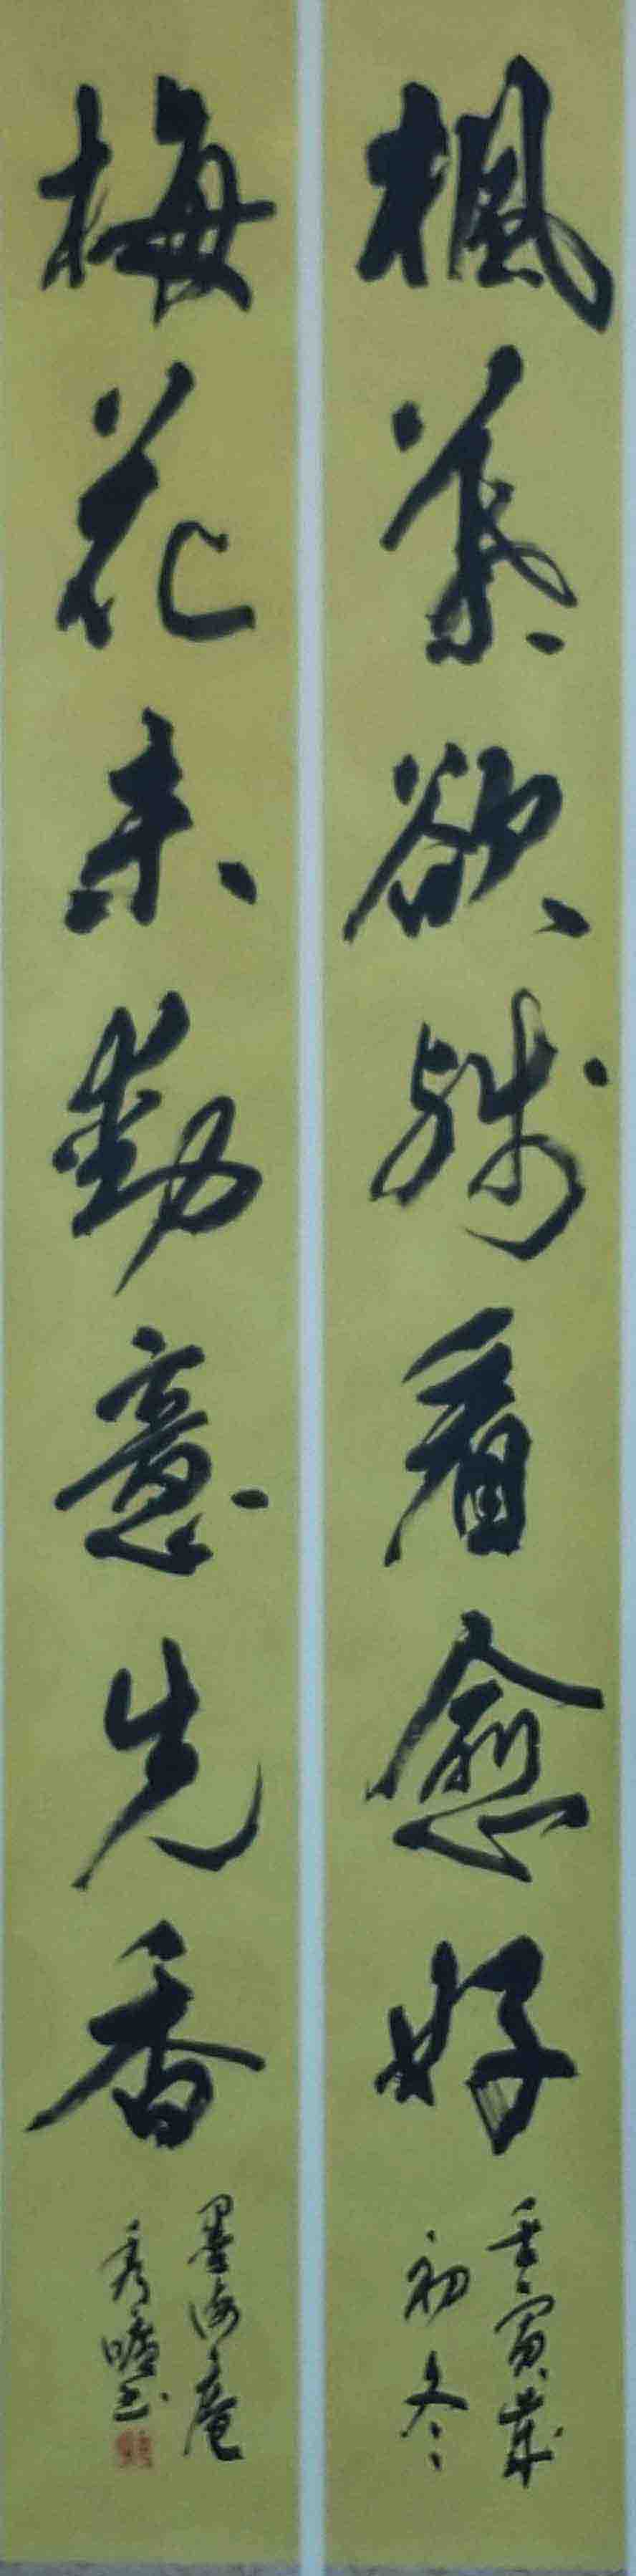 楓葉欲殘看愈好
壬寅歲
初冬
梅花未動意先香
墨海庵
秀峰書